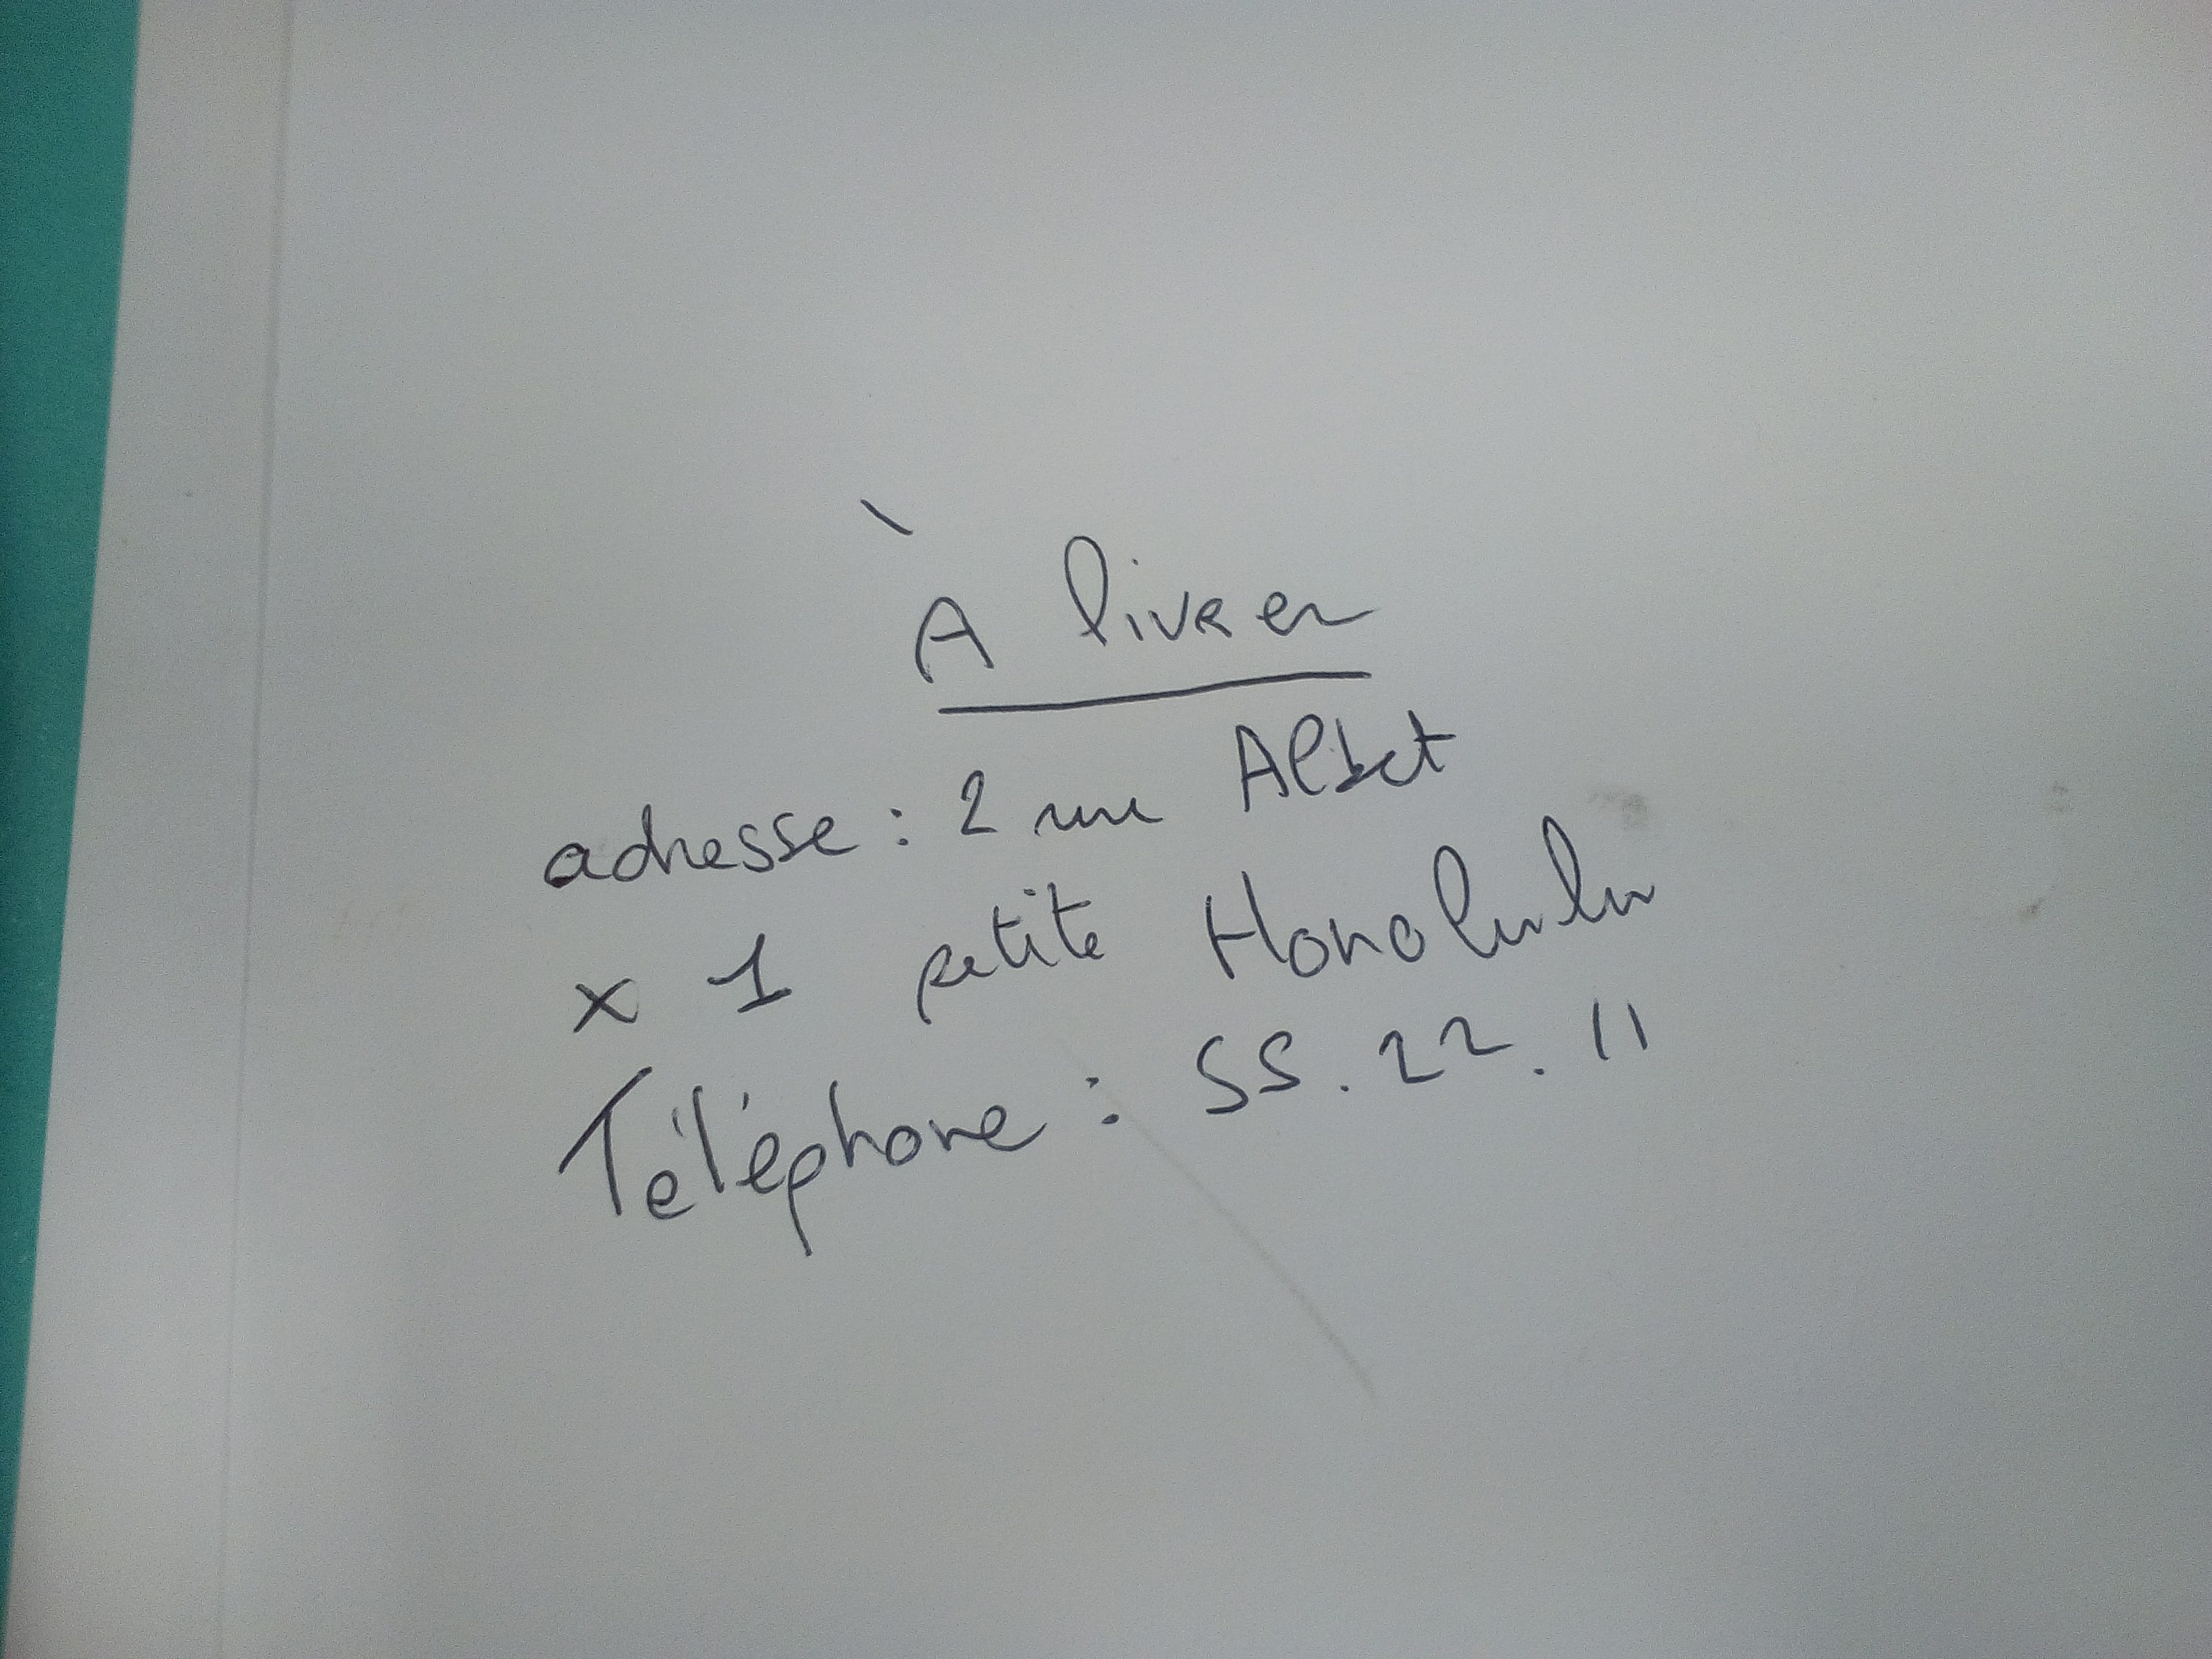 À livrer
adresse : 2 rue Albet
x 1 petite Honolulu
Téléphone : 55.22.11